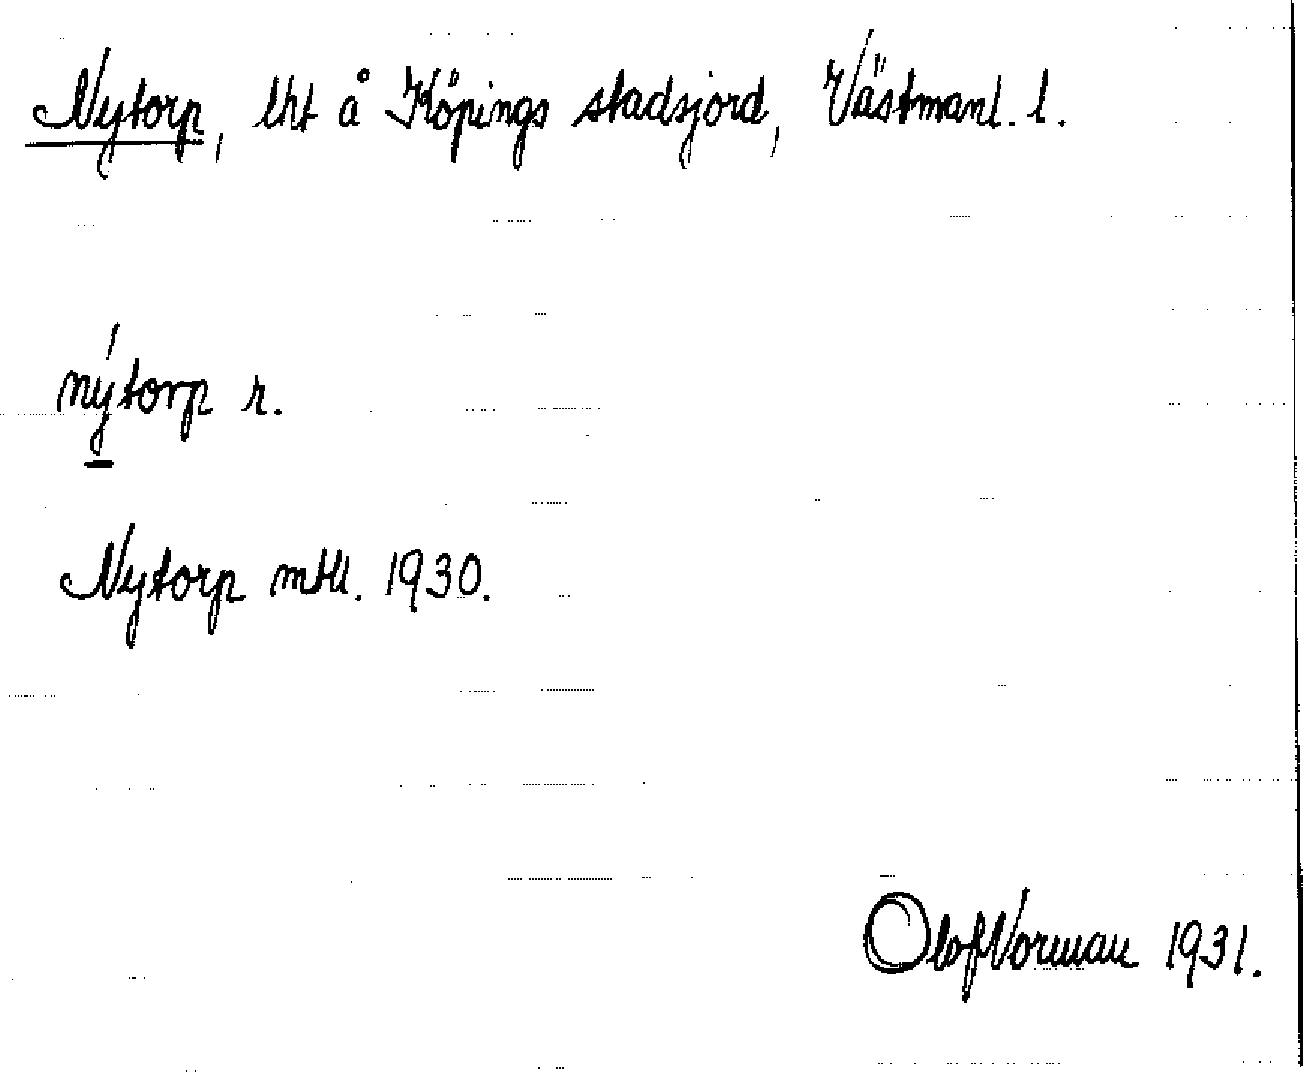 Nytorp, lht å Köpings stadsjord, Västmanl. l.
nýtorp r.
Nytorp mtl. 1930.
Olof Norman 1931.